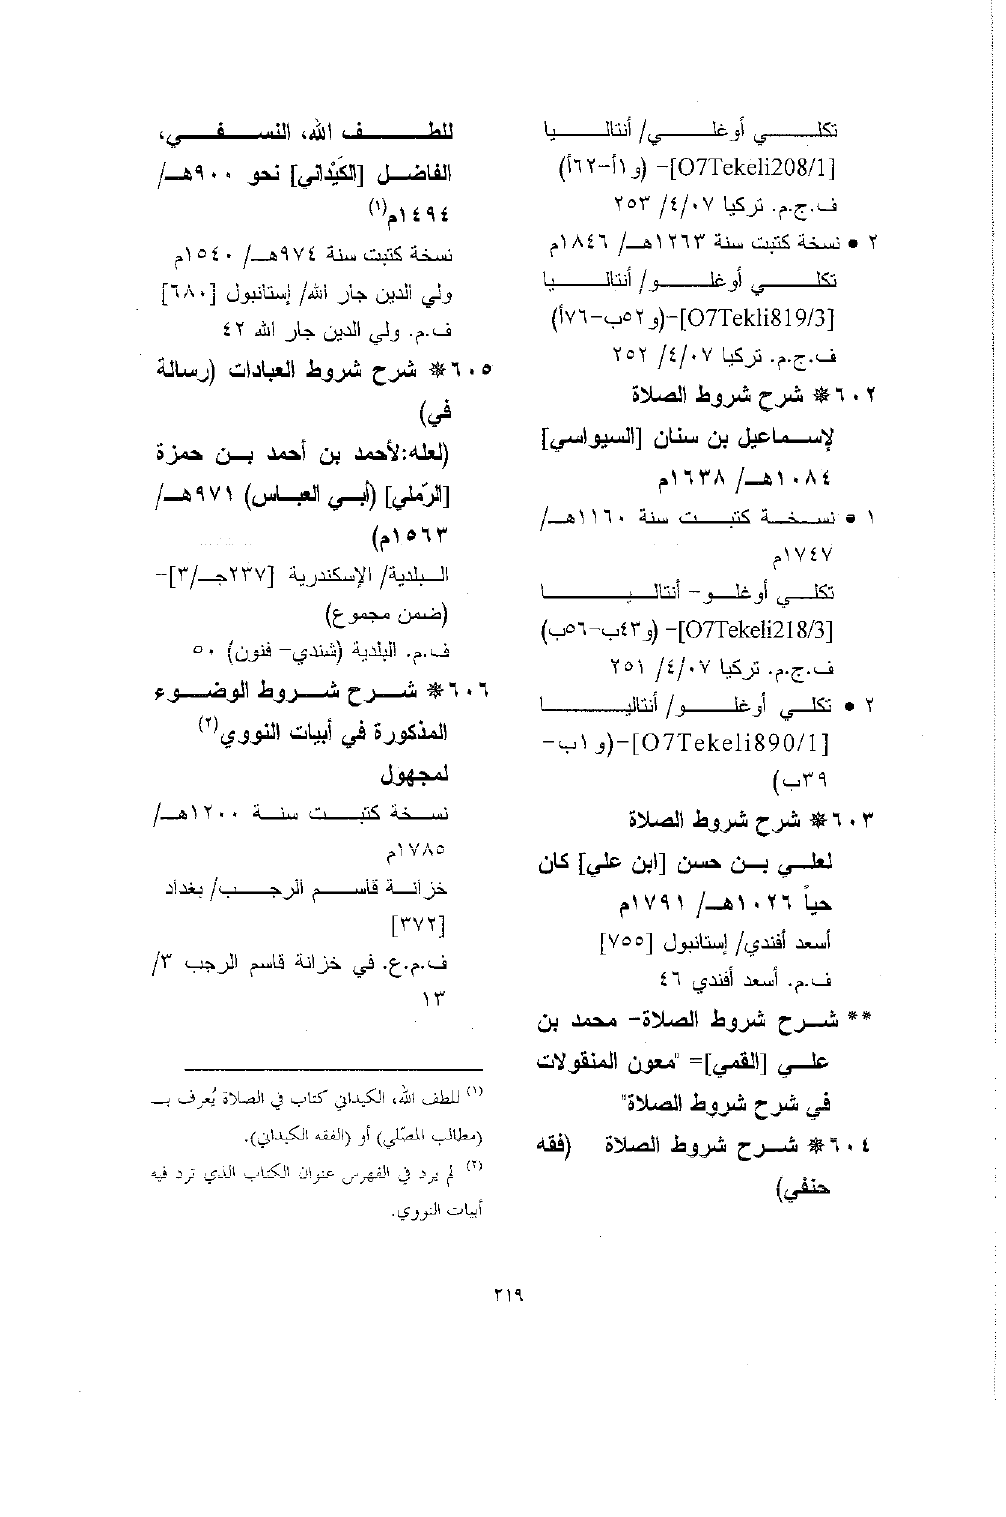 تكلـــي أوغلـــي/ أنتاليـــا
[O7Tekeli208/1]- (و١أ-٦٢أ)
ف.ج.م. تركيا ٤/٠٧/ ٢٥٣
٢ • نسخة كتبت سنة ١٢٦٣هـ/ ١٨٤٦م
تكلـــي أوغلـــو/ أنتاليـــا
[O7Tekli819/3]-(و٥٢ب-٧٦أ)
ف.ج.م. تركيا ٤/٠٧/ ٢٥٢
٦٠٢* شرح شروط الصلاة
لإسماعيل بن سنان [السيواسي]
١٠٨٤هـ/ ١٦٣٨م
١ • نسخة كتبت سنة ١١٦٠هـ/
١٧٤٧م
تكلـــي أوغلـــو- أنتاليـــا
[O7Tekeli218/3]- (و٤٣ب-٥٦ب)
ف.ج.م. تركيا ٤/٠٧/ ٢٥١
٢ • تكلـــي أوغلـــو/ أنتاليـــا
[O7Tekeli890/1]-(و١ب-
٣٩ب)
٦٠٣* شرح شروط الصلاة
لعلي بن حسن [ابن علي] كان
حياً ١٠٢٦هـ/ ١٧٩١م
أسعد أفندي/ إستانبول [٧٥٥]
ف.م. أسعد أفندي ٤٦
** شرح شروط الصلاة- محمد بن
علي [القمي]= "معون المنقولات
في شرح شروط الصلاة"
٦٠٤* شرح شروط الصلاة (فقه
حنفي)
للطـــف الله، النســـفـــي،
الفاضل [الكَيْداني] نحو ٩٠٠هـ/
١٤٩٤م(١)
نسخة كتبت سنة ٩٧٤هـ/ ١٥٤٠م
ولي الدين جار الله/ إستانبول [٦٨٠]
ف.م. ولي الدين جار الله ٤٢
٦٠٥* شرح شروط العبادات (رسالة
في)
(لعله:لأحمد بن أحمد بن حمزة
[الرّملي] (أبي العباس) ٩٧١هـ/
١٥٦٣م)
البلدية/ الإسكندرية [٢٣٧جـ/٣]-
(ضمن مجموع)
ف.م. البلدية (شندي- فنون) ٥٠
٦٠٦* شرح شروط الوضوء
المذكورة في أبيات النووي(٢)
لمجهول
نسخة كتبت سنة ١٢٠٠هـ/
١٧٨٥م
خزانة قاسم الرجب/ بغداد
[٣٧٢]
ف.م.ع. في خزانة قاسم الرجب ٣/
١٣
(١) للطف الله، الكيداني كتاب في الصلاة يُعرف بـ
(مطالب المصّلي) أو (الفقه الكيداني).
(٢) لم يرد في الفهرس عنوان الكتاب الذي ترد فيه
أبيات النووي.
٢١٩